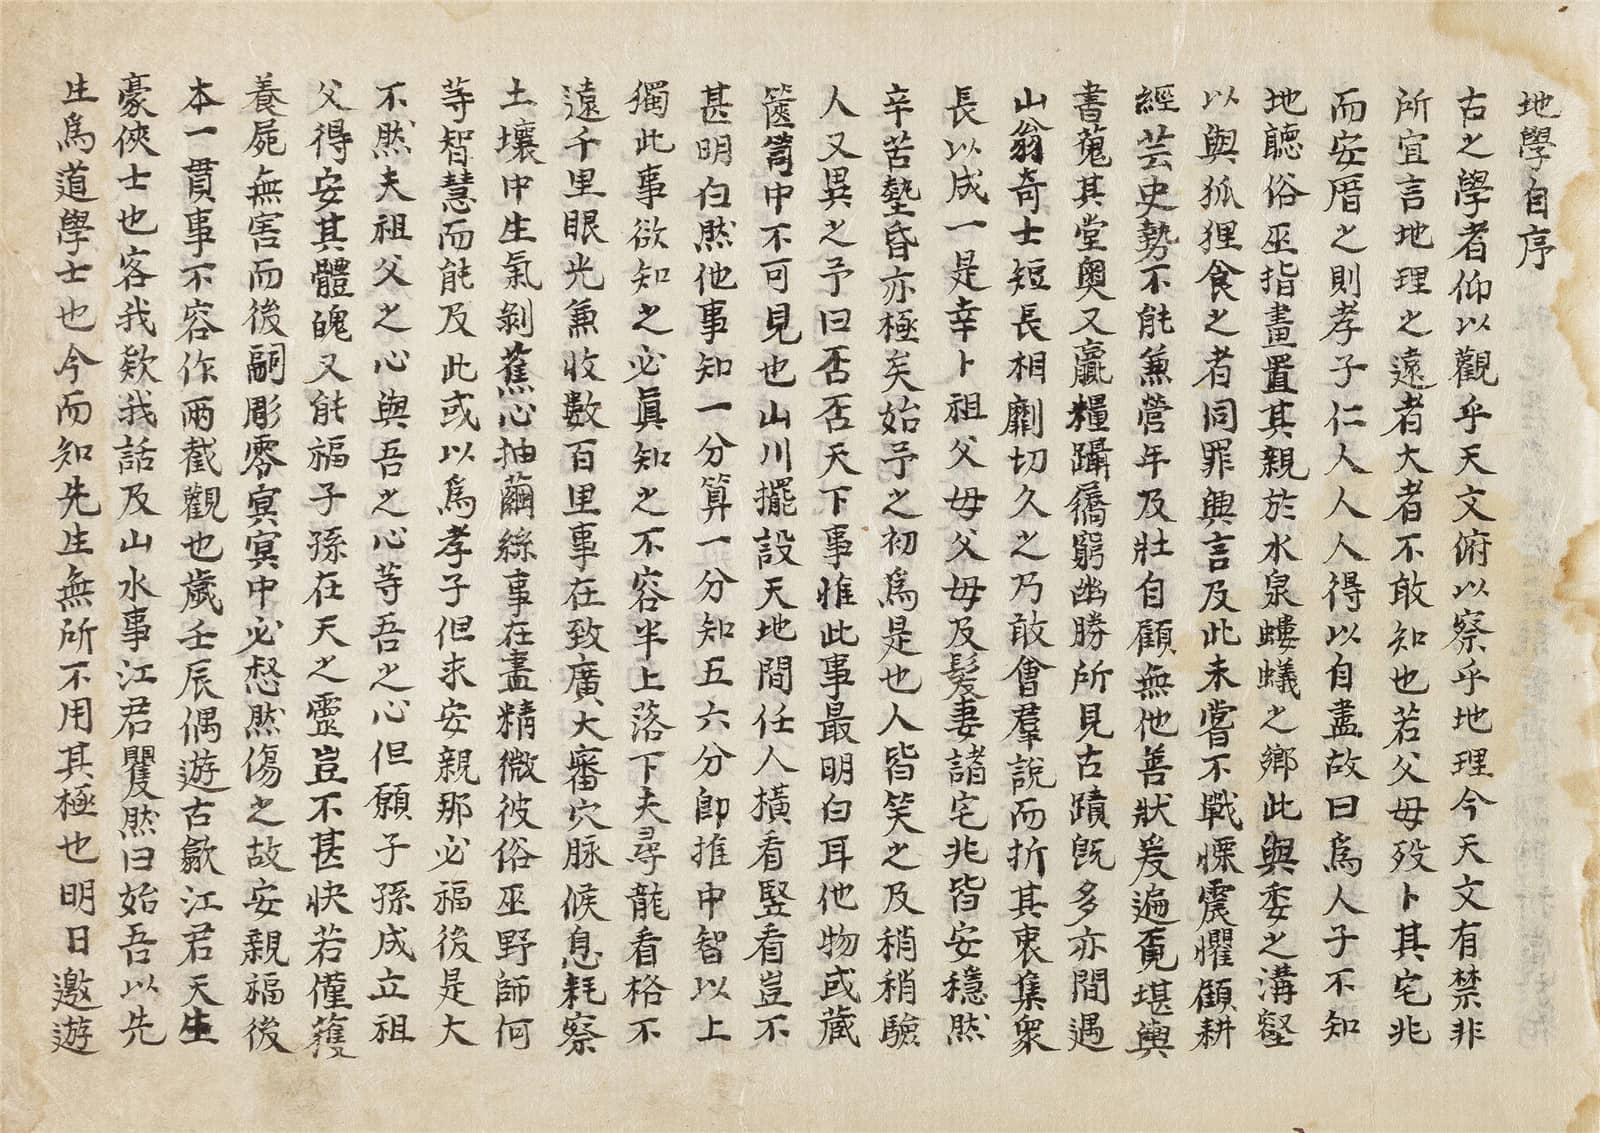 地學自序
古之學者仰以觀乎天文俯以察乎地理今天文有禁非
所宜言地理之遠者大者不敢知也若父母歿卜其宅兆
而安厝之則孝子仁人人人得以自盡故曰爲人子不知
地聽俗巫指畫置其親於水泉螻蟻之鄉此與委之溝壑
以與狐狸食之者同罪興言及此未嘗不戰慄震懼顧耕
經芸史勢不能兼營年及壯自顧無他善狀爰遍覓堪輿
書蒐其堂奧又贏糧躡屩窮幽勝所見古蹟旣多亦間遇
山翁奇士短長相劘切久之乃敢會羣說而折其衷集衆
長以成一是幸卜祖父母父母及髮妻諸宅兆皆安穩然
辛苦墊昏亦極矣始予之初爲是也人皆笑之及稍稍驗
人又異之予曰否否天下事惟此事最明白耳他物或藏
篋笥中不可見也山川擺設天地間任人橫看竪看豈不
甚明白然他事知一分算一分知五六分卽推中智以上
獨此事欲知之必眞知之不容半上落下夫尋龍看格不
遠千里眼光兼收數百里事在致廣大審穴脉候息耗察
土壤中生氣剝蕉心抽繭絲事在盡精微彼俗巫野師何
等智慧而能及此或以爲孝子但求安親那必福後是大
不然夫祖父之心與吾之心等吾之心但願子孫成立祖
父得安其體魄又能福子孫在天之靈豈不甚快若僅獲
養屍無害而後嗣彫零冥冥中必愁然傷之故安親福後
本一貫事不容作兩截觀也歲壬辰偶遊古歙江君天生
豪俠士也客我欵我話及山水事江君矍然曰始吾以先
生爲道學士也今而知先生無所不用其極也明日邀遊